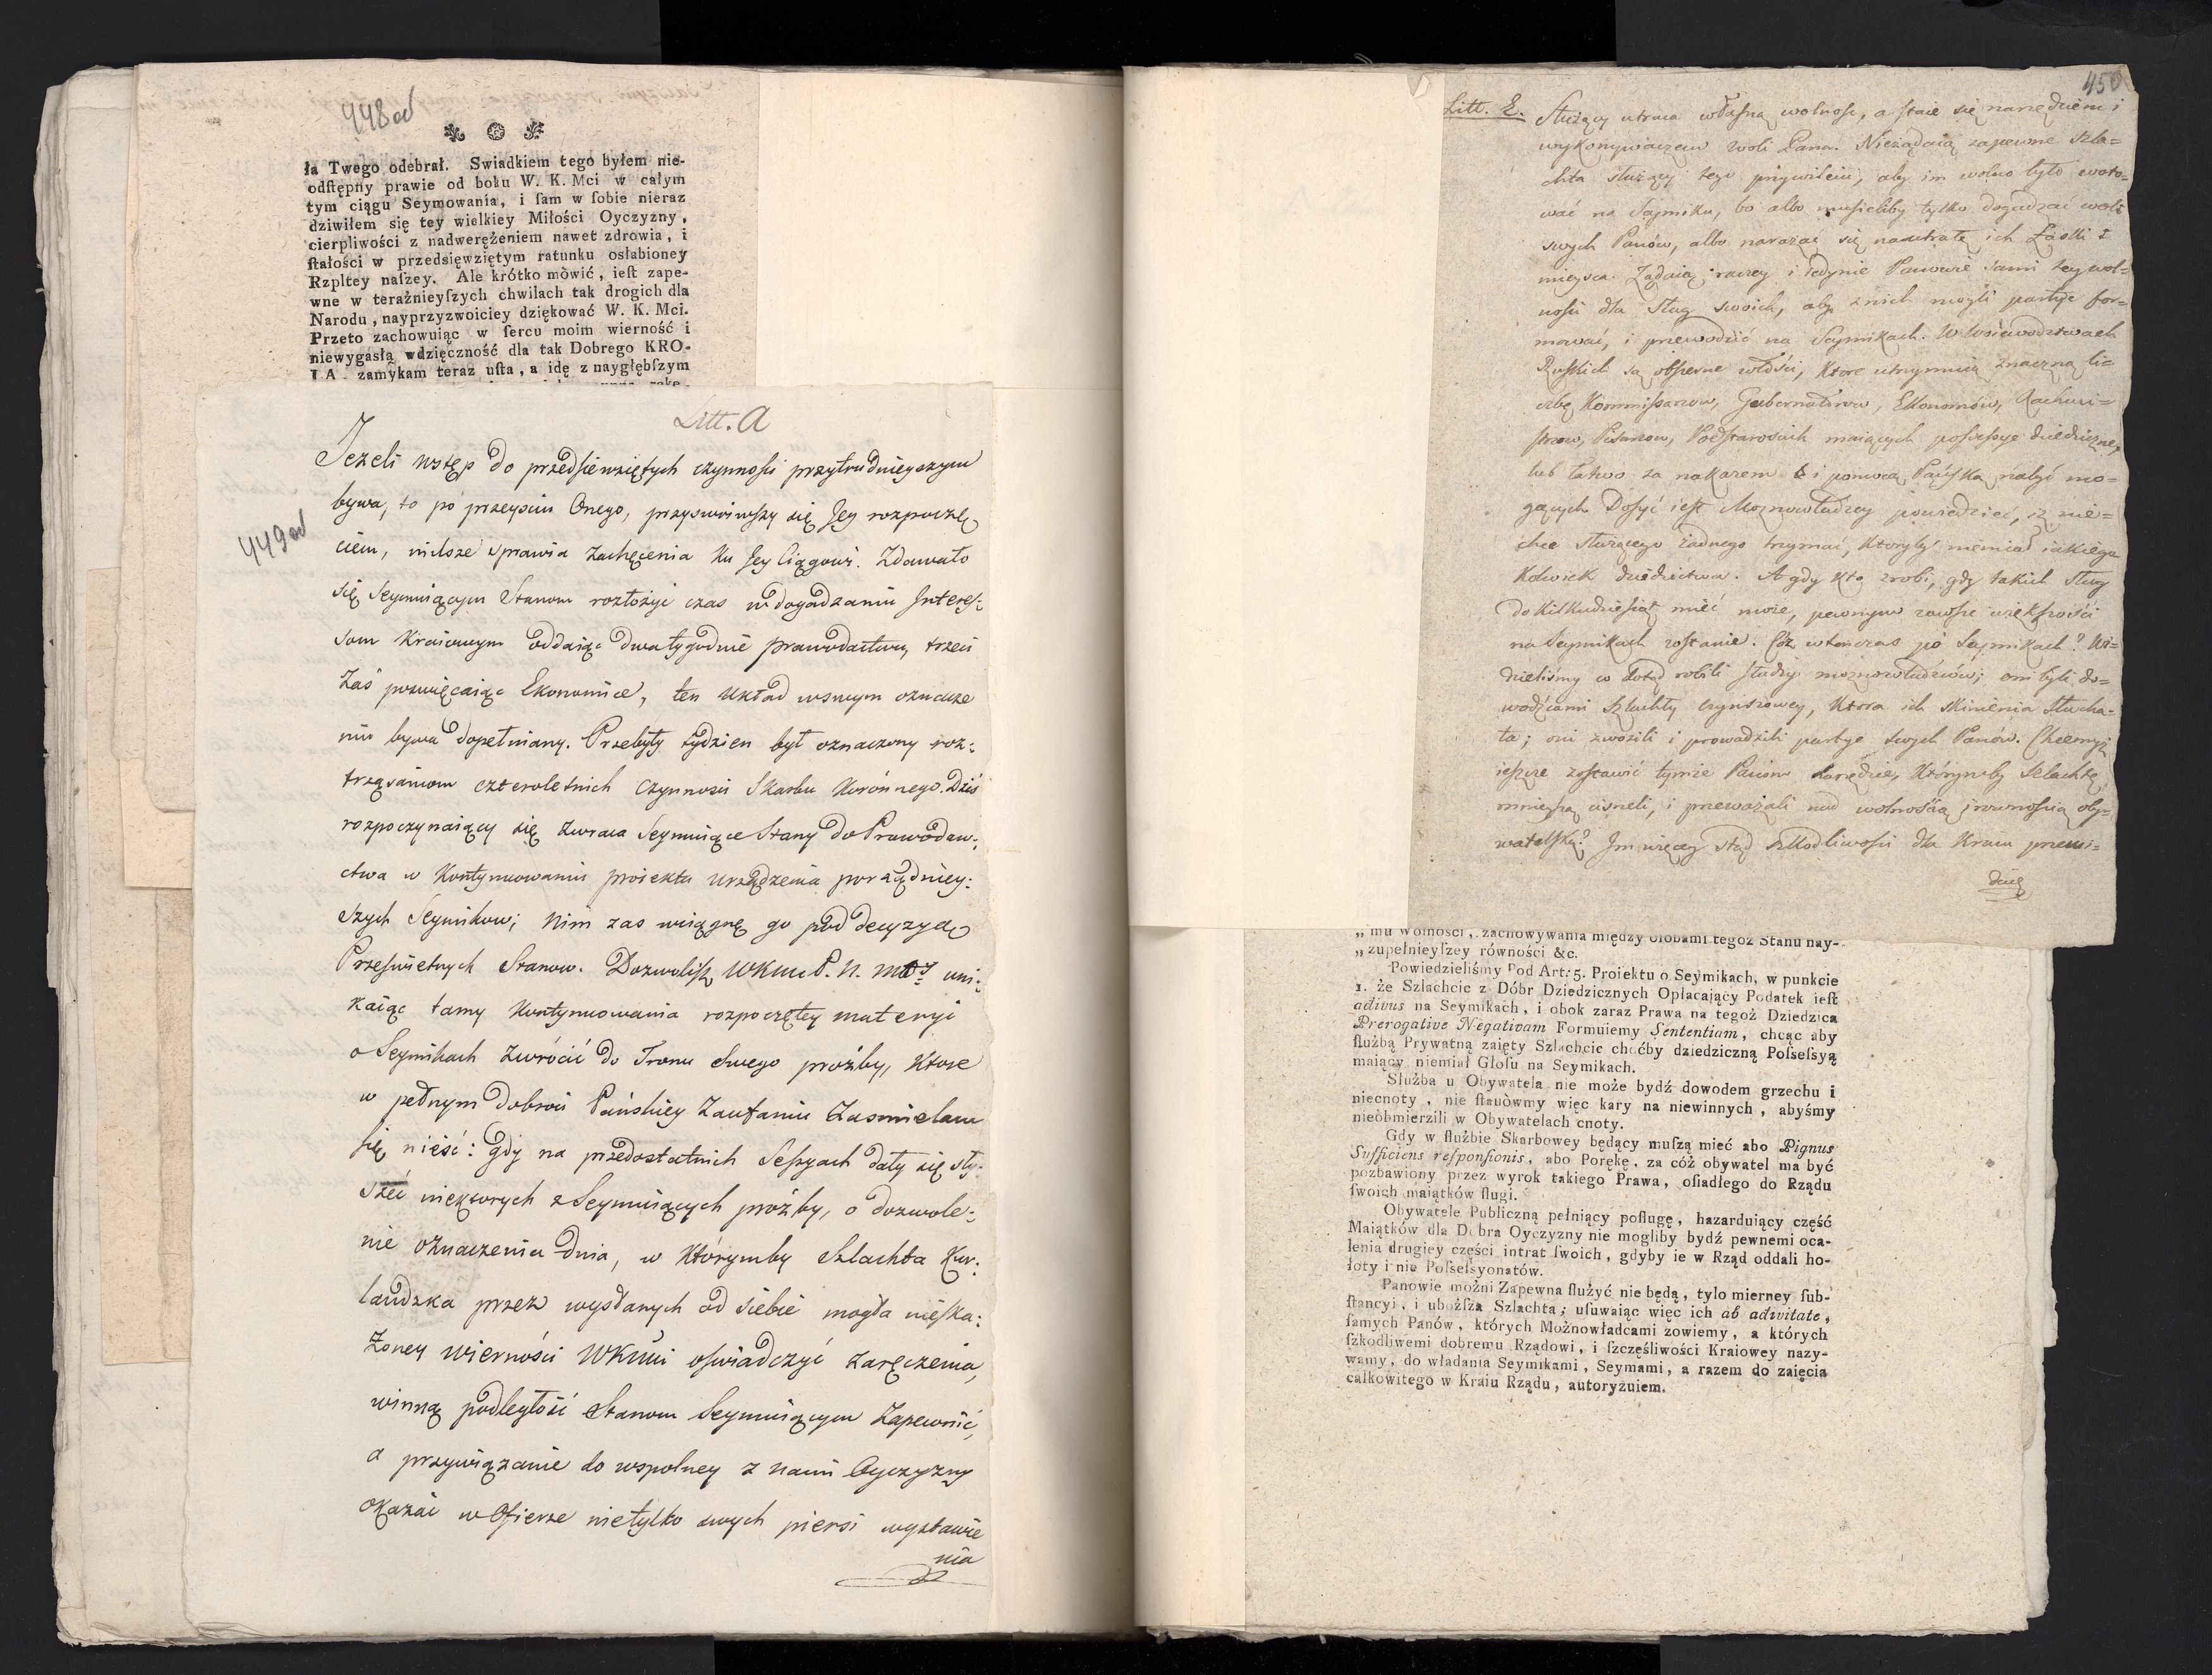 448 od
ła Twego odebrał. Swiadkiem tego byłem nie-
odſtępny prawie od boku W. K. Mci w całym
tym ciągu Seymowania, i ſam w ſobie nieraz
dziwiłem się tey wielkiey Miłości Oyczyzny,
cierpliwości z nadwerężeniem nawet zdrowia, i
ſtałości w przedsięwziętym ratunku osłabioney
Rzpltey naſzey. Ale krótko mòwić, ieſt zape-
wne w teraźnieyſzych chwilach tak drogich dla
Narodu, nayprzyzwoiciey dziękować W. K. Mci.
Przeto zachowuiąc w ſercu moim wierność i
niewygasłą wdzięczność dla tak Dobrego KRO-
LA zamykam teraz uſta, a idę z naygłębſzym
Litt. A
449 od
Jezeli wstęp do przedsiewziętych czynnosci przytrudnieyszym
bywa, to po przeyściu Onego, przyswoiwszy się Jey rozpoczę
ciem, milsze sprawia zachęcenia ku Jey Ciągowi. Zdawało
się Seymuiącym Stanom rozłożyć czas w dogadzaniu Interes-
som Kraiowym oddaiąc dwa tygodnie prawodactwu, trzeci
Zaś poswięcaiąc Ekonomice, ten układ w swym oznacze
niu bywa dopełniany. Przebyty tydzien był oznaczony roz-
trząsaniom czteroletnich Czynnosci Skarbu Korònnego. Dziś
rozpoczynaiący się zwraca Seymuiące Stany do Prawodaw-
ctwa w Kontynuowaniu proiektu urządzenia porządniey-
szych Seymikow; nim zas wciągnę go pod decyzyą
Prześwietnych Stanow. Dozwolisz WKMci P. N. M. uni-
kaiąc tamy Kontynuowania rozpoczętey materyi
o Seymikach zwrócić do Tronu Swego proźby, ktore
w pełnym dobroci Pańskiey Zaufaniu Zasmielam
się nieść: gdy na przedostatnich Seſsyach dały się sły-
szeć niektorych z Seymuiących proźby, o dozwole-
nie oznaczenia dnia, w którymby Szlachta Kur-
landzka przez wysłanych od siebie mogła nieska-
żoney wierności WKMci oświadczyć zaręczenia,
winną podległość Stanom Seymuiącym Zapewnić,
a przywiązanie do wspolney z nami Oyczyzny
okazać w Ofierze nietylko swych piersi wystawie
nia
450
Litt. E. Służący utraca własną wolność, a staie się narzędziem i
wykonywaczem woli Pana. Nieżądaią zapewne Szla-
chta służący tego przywileiu, aby im wolno było woto-
wać na Sejmiku, bo albo musieliby tylko dogadzać woli
swych Panów, albo narażać się na utratę ich Łaski i
mieysca. Żądaią raczey i iedynie Panowie sami tey wol-
ności dla sług swoich, aby z nich mogli partye for-
mować, i przewodzić na Seymikach. W Woiewodztwach
Ruskich są obszerne włości, które utrzymuią znaczną li-
czbę Kommissarzow, Gubernatorow, Ekonomów, Rachmi-
strzow, Pisarzow, Podstarościch maiących possessye dziedziczne,
lub łatwo za nakazem i pomocą Pańską nabyć mo-
gących. Dosyć iest Możnowładzcy powiedzieć, iż nie-
chce służącego żadnego trzymać, któryby niemiał iakiego
kolwiek dziedzictwa. A gdy kto zrobi, gdy takich sług
do kilkudziesiąt mieć może, pewnym zawsze większości
na Seymikach zostanie. Cóż wtenczas po Seymikach? Wi-
dzieliśmy co dotąd robili słudzy możnowładzców; oni byli do-
wodźcami Szlachty czynszowey, która ich skinienia słucha-
ła; oni zwozili i prowadzili partye swych Panow. Chcemyż
ieszcze zostawić tymże Panom narzędzie, którymby Szlachtę
mnieyszą cisneli, i przeważali nad wolnością i rownością oby-
watelską? Im więcey stąd szkodliwości dla Kraiu przewi-
duię
„ mu Wolności, zachowywania między oſobami tegoż Stanu nay-
„ zupełnieyſzey równości &c.
Powiedzieliśmy Pod Art: 5. Proiektu o Seymikach, w punkcie
1. że Szlachcic z Dóbr Dziedzicznych Opłacaiący Podatek ieſt
adivus na Seymikach, i obok zaraz Prawa na tegoż Dziedzica
Prerogative Negativam Formuiemy Sententiam, chcąc aby
ſłużbą Prywatną zaięty Szlachcic choćby dziedziczną Poſseſsyą
maiący niemiał Głoſu na Seymikach.
Służba u Obywatela nie może bydź dowodem grzechu i
niecnoty, nie ſtanòwmy więc kary na niewinnych, abyśmy
nieòbmierzili w Obywatelach cnoty.
Gdy w ſłużbie Skarbowey będący muſzą mieć abo Pignus
Sufficiens reſponſionis, abo Porękę, za cóż obywatel ma być
pozbawiony przez wyrok takiego Prawa, oſiadłego do Rządu
ſwoich maiątków ſługi.
Obywatele Publiczną pełniący poſługę, hazarduiący część
Maiątków dla Dobra Oyczyzny nie mogliby bydź pewnemi oca-
lenia drugiey części intrat ſwoich, gdyby ie w Rząd oddali ho-
łoty i nie Poſseſsyonatów.
Panowie możni Zapewna ſłużyć nie będą, tylo mierney ſub-
ſtancyi, i uboższa Szlachta; uſuwaiąc więc ich ab adivitate,
ſamych Panów, których Możnowładcami zowiemy, a których
ſzkodliwemi dobremu Rządowi, i ſzczęśliwości Kraiowey nazy-
wamy, do władania Seymikami, Seymami, a razem do zaięcia
całkowitego w Kraiu Rządu, autoryżuiem.